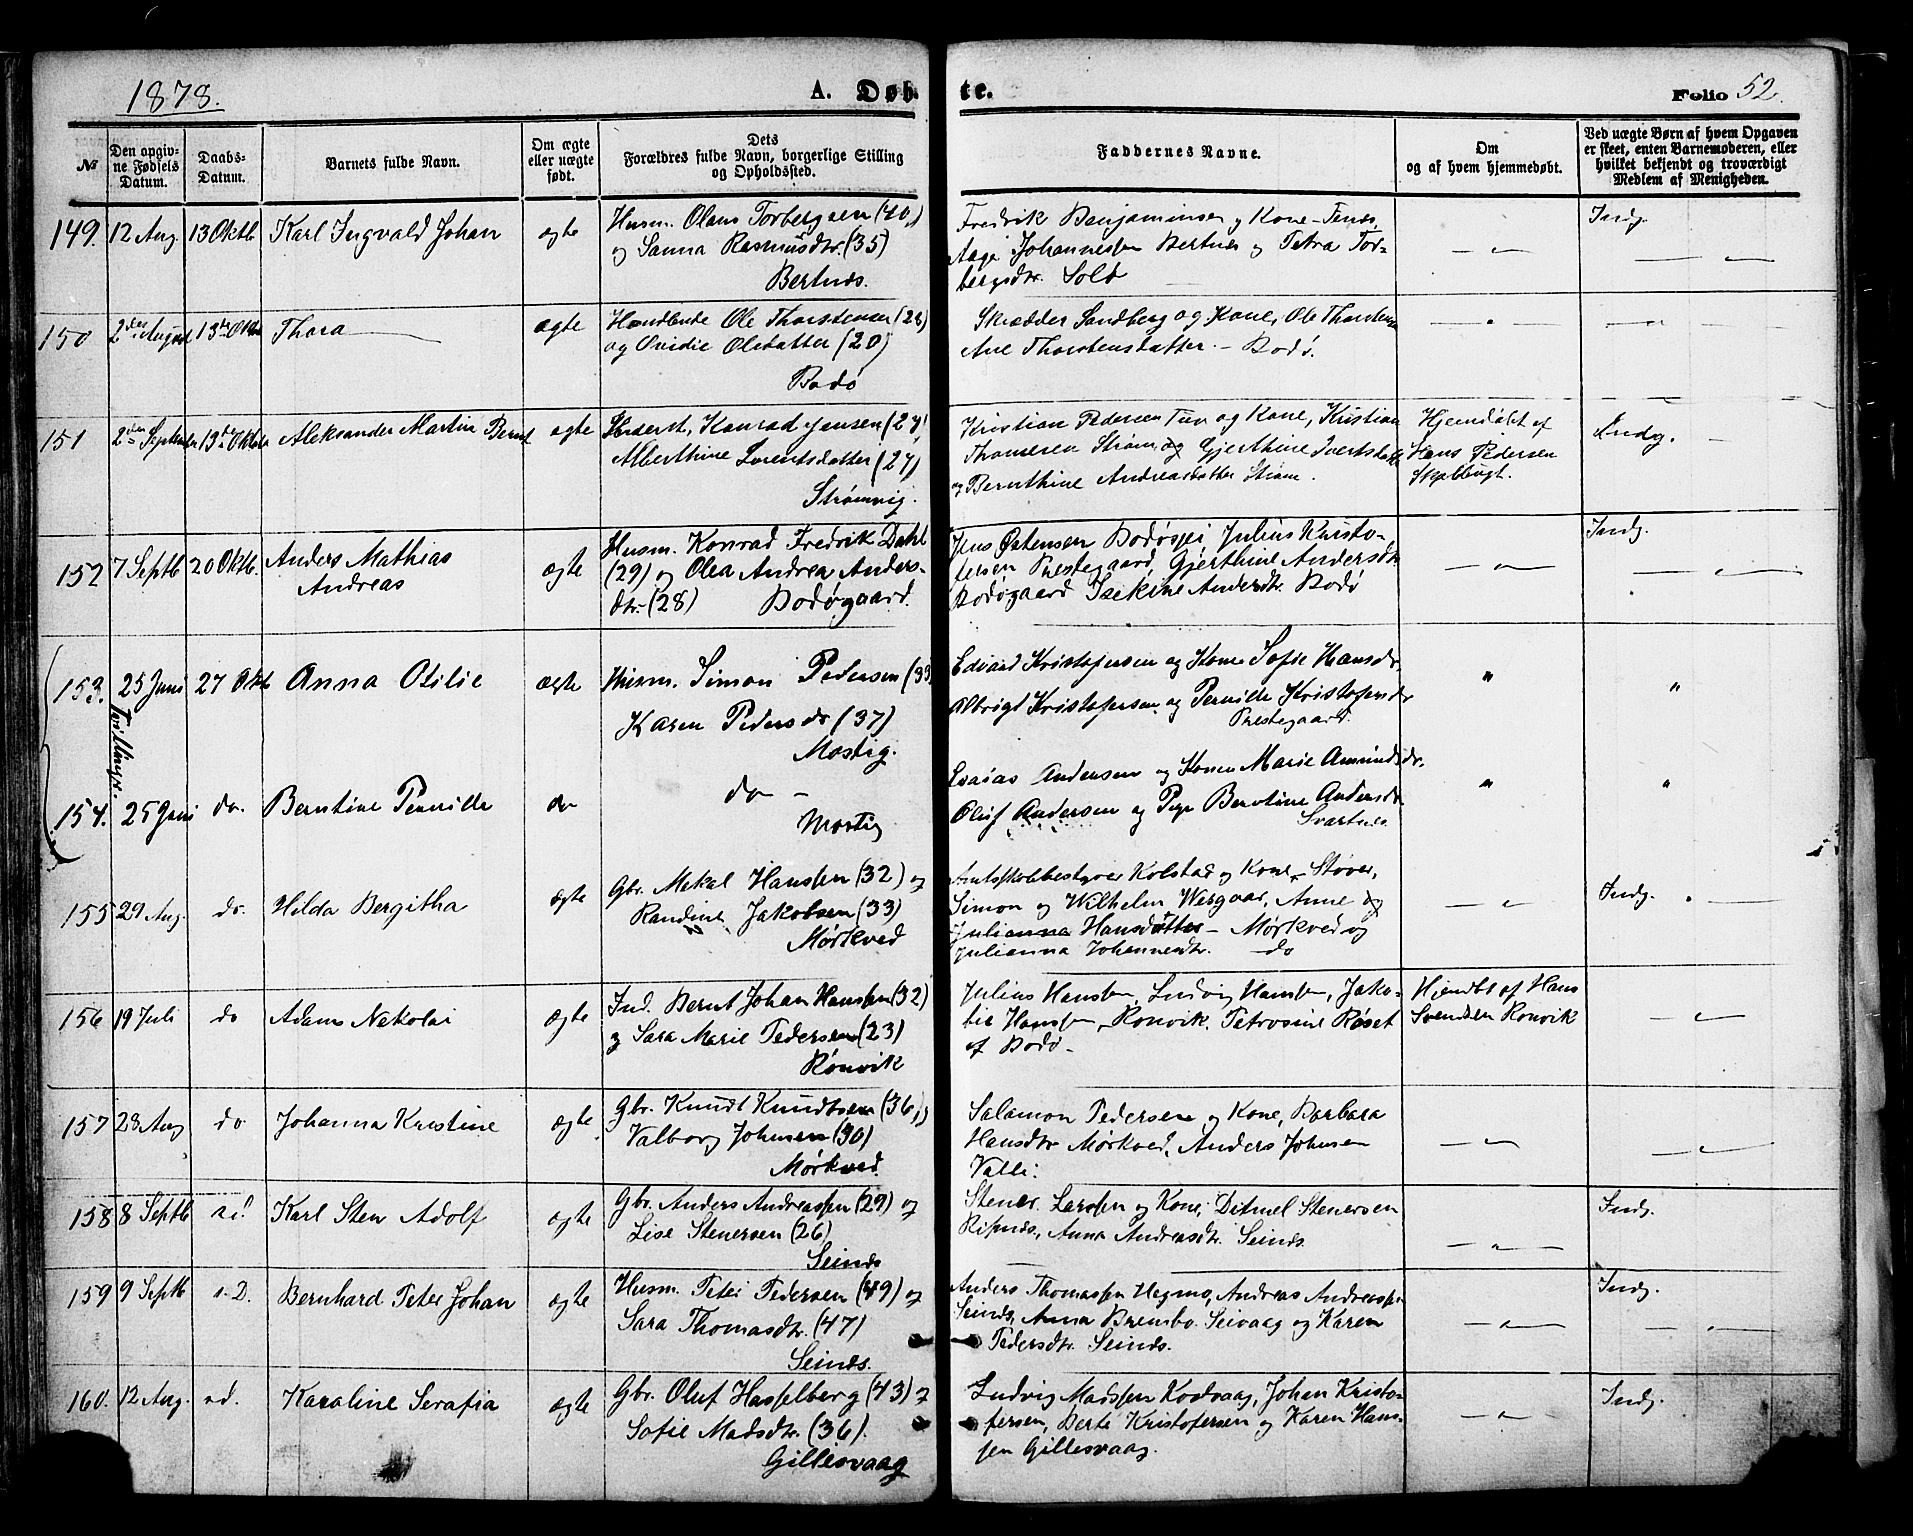 1878.
A. Døb-
te.
Folio 52.
№
Den opgiv-
ne Fødsels
Datum.
Daabs-
Datum.
Barnets fulde Navn.
Om ægte
eller uægte
født.
Dets
Forældres fulde Navn, borgerlige Stilling
og Opholdssted.
Faddernes Navne.
Om
og af hvem hjemmedøbt.
Ved uægte Børn af hvem Opgaven
er skeet, enten Barnemoderen, eller
hvilket bekjendt og troværdigt
Medlem af Menigheden.
149. 12 Aug. 13 Oktb Karl Ingvald Johan ægte
Husm. Olaus Torbergsen (40)
og Sanna Rasmusdtr. (35)
Bertnæs.
Fredrik Benjaminsen og Kone
Aage Johannesen Bertnes og Petra Tor-
bergsdtr. Solø
Indg.
150 2den August 13de Thora ægte
Handlende Ole Thorstensen (28)
og Ovidie Olsdatter (20)
Bodø
Skrædder Sandberg og Kone, Ole Thorstens
Ane Thorstensdatter. - Bodø.
151 2den September 13de Oktob Aleksander Martin Bernt ægte
Konrad Jensen (27)
Alberthine Lorentsdatter (27)
Strømvig.
Kristian Pedersen Tuv og Kone, Kristian
Thomesen Strøm og Gjerthine Ivertsdatt
og Bernthine Andreasdatter Strøm.
Hjemdøbt af
Hans Pedersen
Indg.
152 7 Septb 20 Oktb. Anders Mathias
Andreas
ægte
Husm. Konrad Fredrik Dahl
(29) og Olea Andrea Anders-
dtr. (28) Bodøgaard.
Jens Østensen Bodøsjø Julius Kristo-
fersen Prestegaard, Gjerthine Andersdtr
Bodøgaard Andersdtr. Bodø
Indg.
153. 25 Juni 27 Okt Anna Otilie ægte
Husm. Simon Pedersen (39)
Karen Pedersdr (37)
Mostig.
Edvard Kristofersen og Kone Sofie Hansdr.
Albrigt Kristofersen og Pernille Kristofersdr
Prestegaard.
Tvillinger.
154. 25 Juni do. Berntine Pernille do
do -
Mostig
Esaias Andersen og Konen Marie Amundsdr.
Oluf Andersen og Pige Berntine Andersdr.
Svartnes.
155 29 Aug. do. Hilda Bergitha ægte
Gbr. Mekal Hanssen (32) og
Randine Jakobsen (33)
Mørkved
Amtsskolebestyrer Kolstad og Kone - Støver,
Simon og Wilhelm Wesgaar, Anne og
Julianna Hansdatter - Mørkved og
Julianna Johannesdtr. do
Indg.
156 19 Juli do Adam Nekolai ægte
Ind. Bernt Johan Hanssen (32)
og Sara Marie Pedersen (23)
Rønvik
Julius Hanssen, Ludvig Hanssen, Jako-
bie Hanssen, Rønvik. Petrosine Røset
af Bodø -
Hjemdbt af Hans
Svendsen Rønvik
157 28 Aug do Johanna Kristine ægte
Gbr. Knudt Knudtsen (36) og
Valborg Johnsen (30)
Mørkved.
Salamon Pedersen og Kone, Barbara
Hansdtr Mørkved, Anders Johnsen
Valle.
158 8 Septb Karl Sten Adolf ægte
Gbr. Anders Andreassen (29) og
Lise Stenersen (26)
Seinæs
Stener. Larssen og Kone, Ditmel Stenersen
Ripnæs, Anna Andreasdtr. Seinæs.
Indg.
159 9 Septb s. D. Bernhard Peter Johan ægte
Husm. Peter Pedersen (49) og
Sara Thomasdtr. (47)
Seinæs.
Anders Thomassen Hegmo, Andreas Andreasse
Seinæs, Anna Brembo. Seivaag og Karen
Pedersdtr. Seinæs.
Indg.
160. 12 Aug. sd. Karaline Serafia ægte
Gbr. Oluf Hasselberg (43) og
Sofie Madsdtr. (36).
Gillesvaag
Ludvig Madssen Kodvaag, Johan Kristo-
fersen, Berte Kristofersen og Karen Hans-
sen Gillesvaag.
Indg.